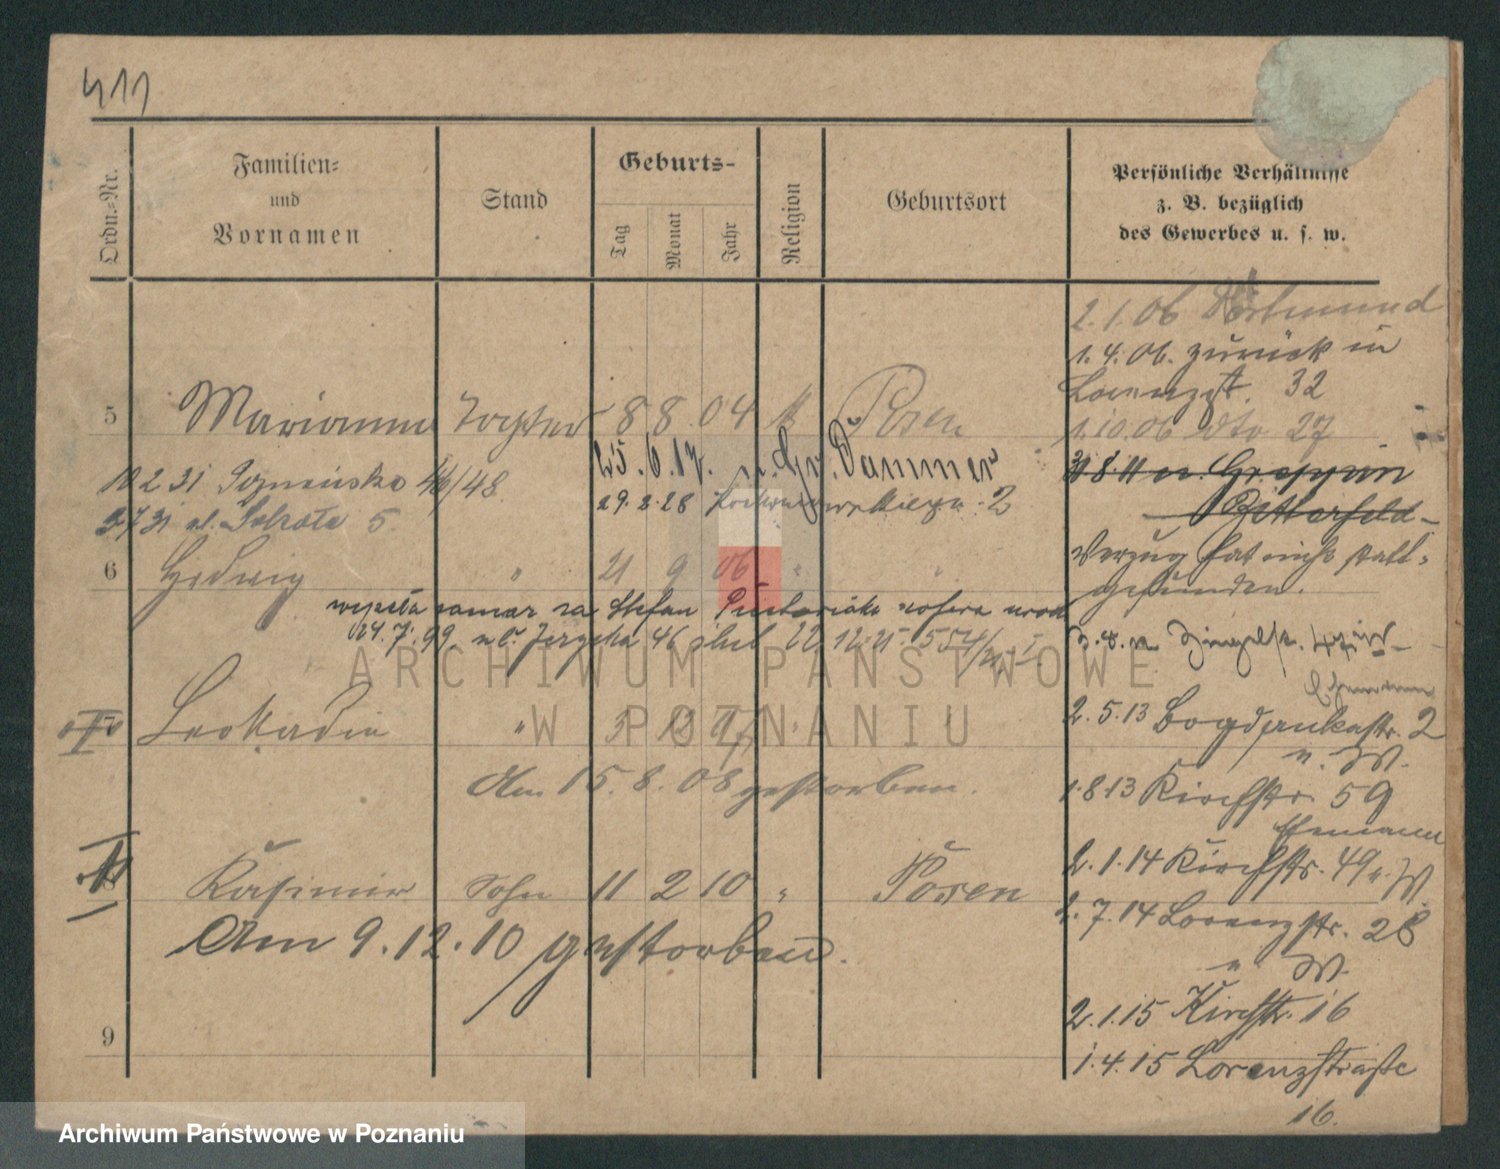 411
Ordn.-Nr.
Familien-
und
Vornamen
Stand
Geburts-
Tag
Monat
Jahr
Religion
Geburtsort
Persönliche Verhältnisse
z. B. bezüglich
des Gewerbes u. s. w.
2.1.06 Dortmund
1.4.06. zurück in
Lorenzstr. 32
5 Marianna Tochter 8 8 04 k Posen
1.10.06 dto 27
25.6.17. n. Gr. Dammer
10 2 31 Poznańska 46/48
29.2.28 2
31 8 11 n. Greppin
Bitterfeld
31 ul. 5.
Verzug hat nicht statt-
gefunden.
6 Hedwig " 21 9 06 " "
wyszła zamąż za Stefan
24.7.99. 46 ślub 22.12.25. 554/
7 Leokadia "
Ehemann
2.5.13 Bogdankastr. 2
u. W.
Am 15.8.08 gestorben.
1.8.13 Kirchstr. 59
Ehemann
2.1.14 Kirchstr. 49 u. W.
8 Kasimir Sohn 11 2 10 " Posen
2.7.14 Lorenzstr. 28
u W.
Am 9.12.10 gestorben.
2.1.15 Kirchstr. 16
9
1.4.15 Lorenzstraße
16.
ARCHIWUM PAŃSTWOWE
W POZNANIU
Archiwum Państwowe w Poznaniu